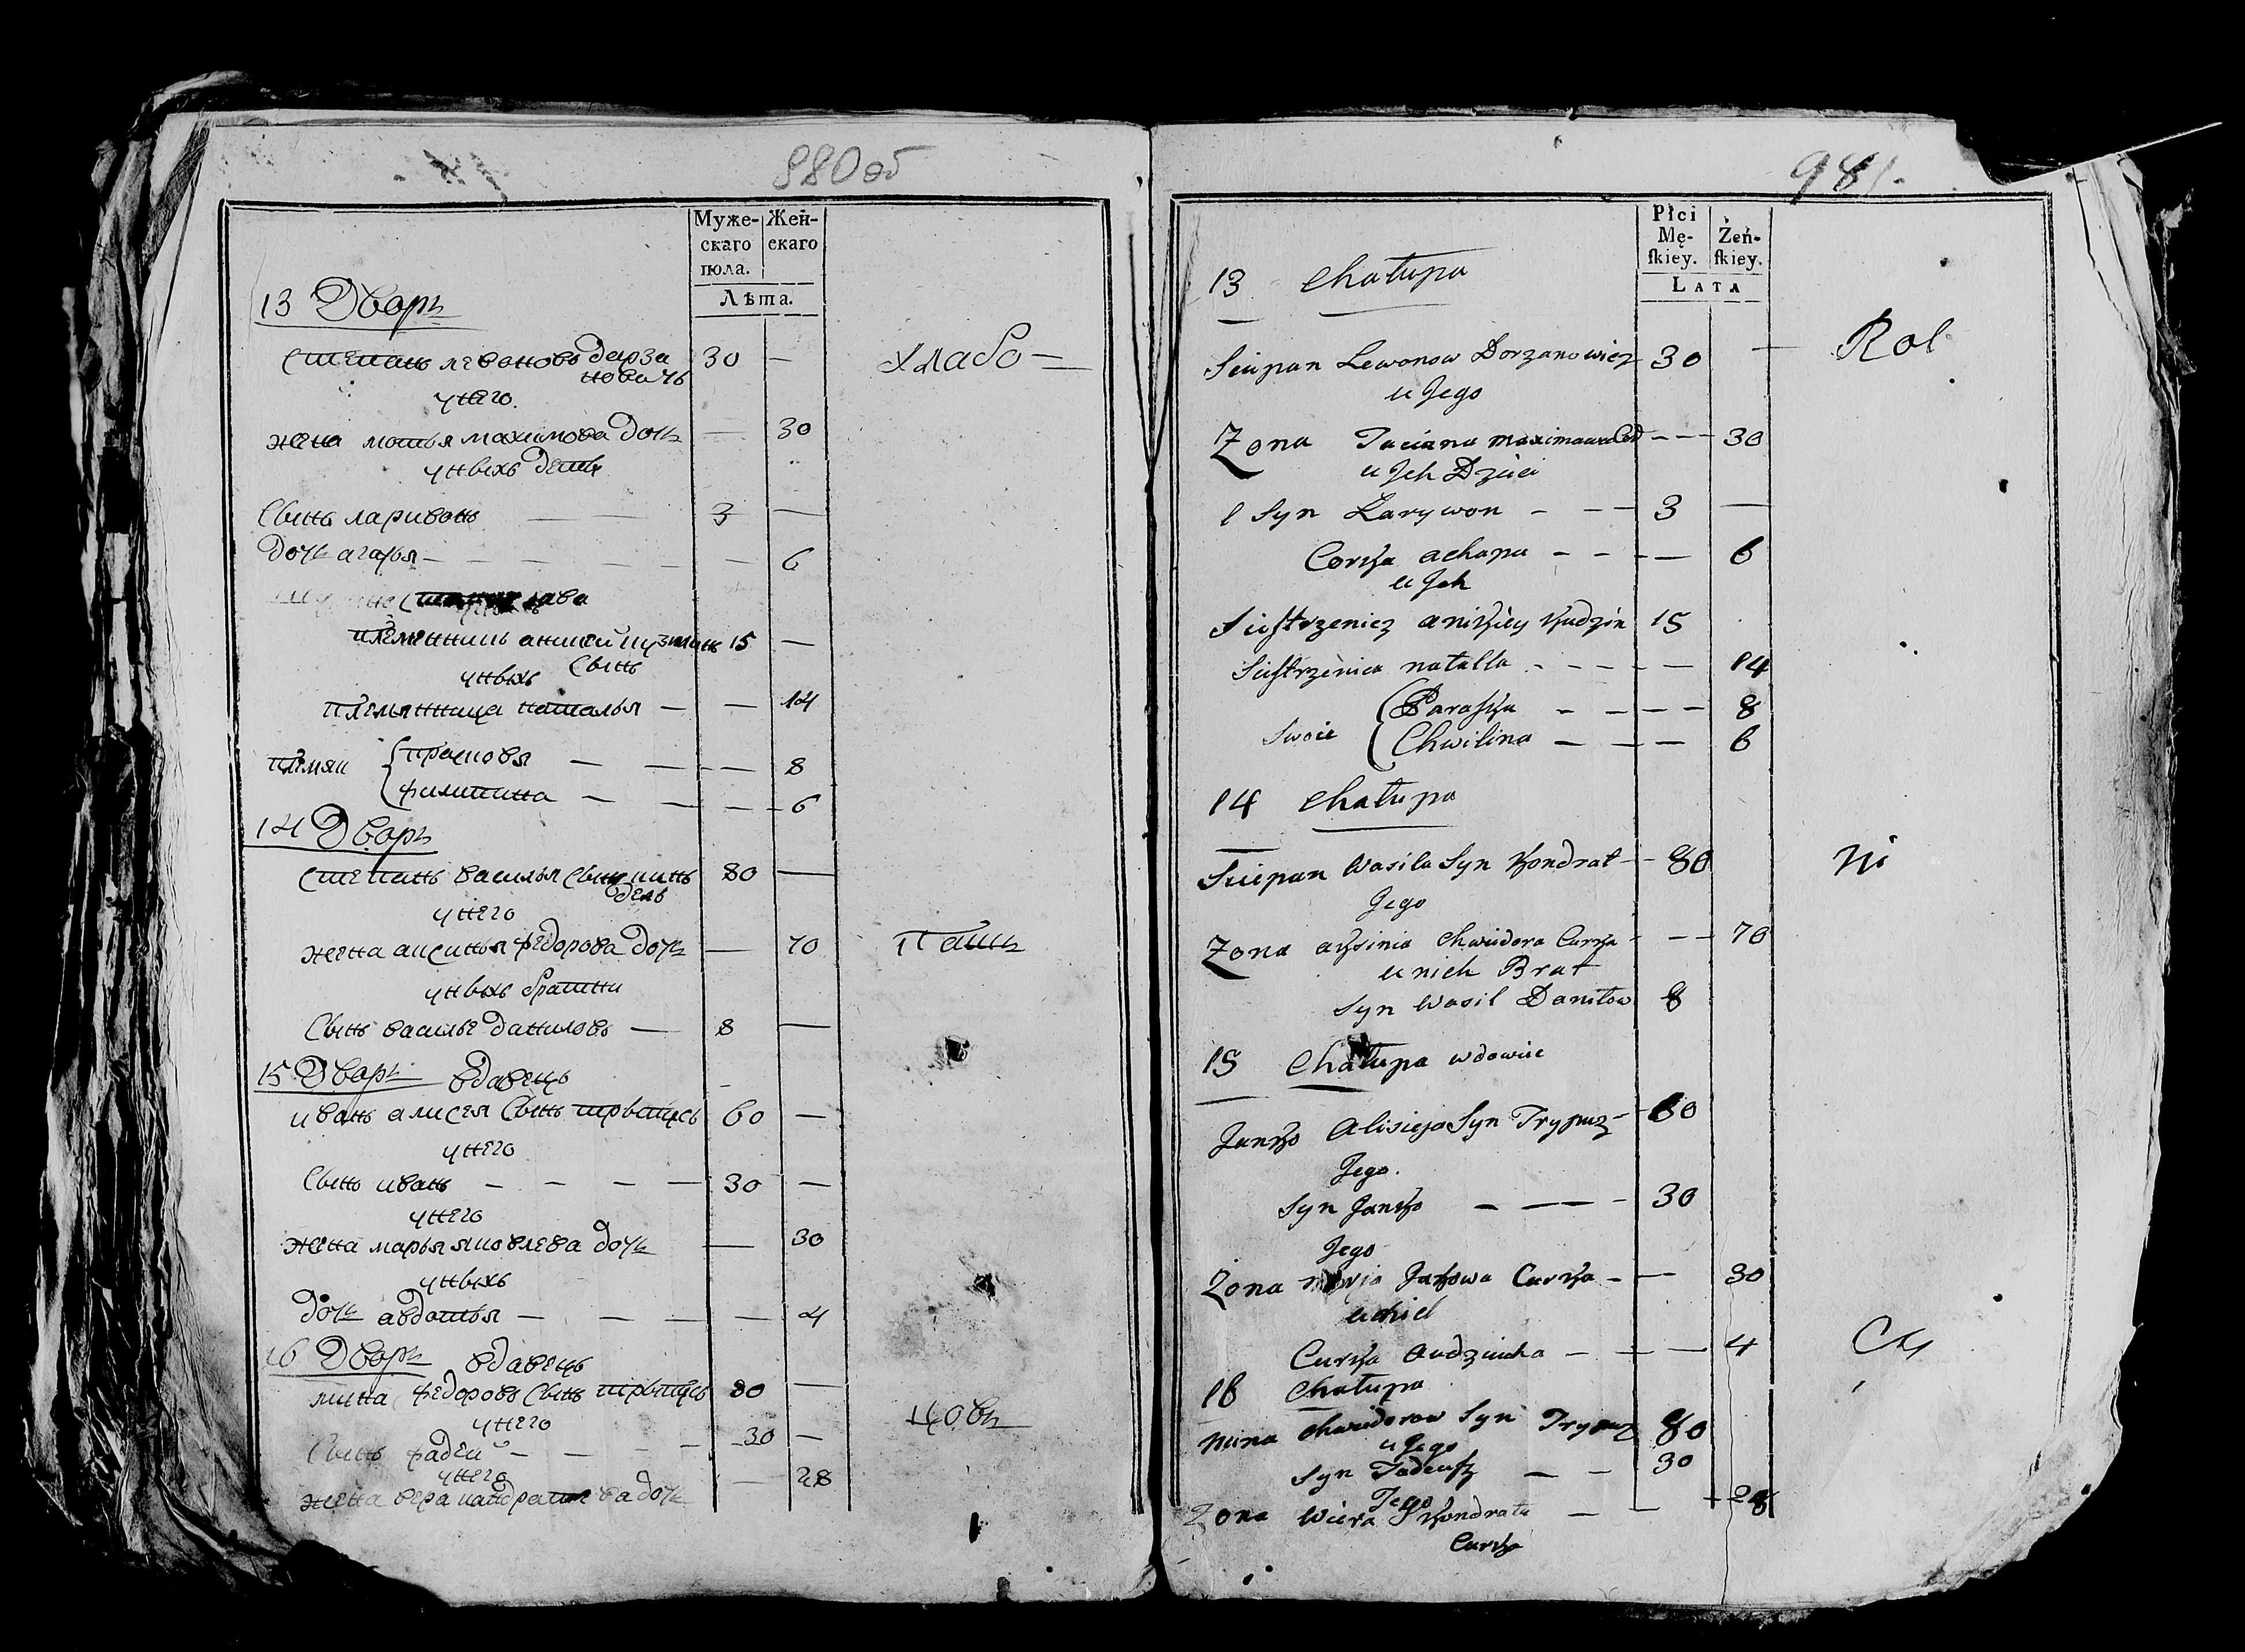 980об
Муже-
скаго
пола.
Жен-
скаго
Лѣта.
13 Дворъ
степанъ левоновъ дарза 30 —
новичъ
унего
жена мотья махимова дочь — 30
унвихъ дети
Сынъ ларивонъ — 3 —
дочь агапя — — 6
племенникъ аникей кузминъ 15 —
сынъ
унвихъ
племянница наталья — — 14
племян { прасковя — — 8
филипина — — 6
14 Дворъ
степанъ василья сынъ 80 —
унего
жена аксинья федорова дочь — 70
унвихъ братни
Сынъ василе даниловъ — 8 —
15 Дворъ вдавецъ
иванъ алисея сынъ 60 —
унего
Сынъ иванъ — 30 —
унего
жена марья яковлева дочь — 30
унвихъ
дочь авдотья — — 4
16 Дворъ вдавецъ
мина федоровъ сынъ 80 —
унего
Сынъ фадей — 30 —
унего
жена вера кандратева дочь — 28
хлабо —
пашъ
цовъ
981.
Płci
Mę-
ſkiey.
Żeń-
ſkiey.
LATA
13 Chałupa
Sciepan Lewonow Dorzanowicz 30 —
u Jego
Zona Taciana maximowa — 30
u Jch Dzieci
1 Syn Larywon — 3 —
Corka achapa — — 6
u Jch
Siestrzeniez anikiey Kudzin 15
Siestrzenica natalla — — 14
Swoie ( Paraska — — 8
( Chwilina — — 6
14 Chałupa
Sciepan Wasila Syn Kondrat — 80
Jego
Zona axsinia Chwiedora Curka — 70
u nich Brat
Syn Wasil Daniłow 8
15 Chałupa wdowiec
Janko Alisieja Syn Trypuz — 60
Jego.
Syn Janko — 30
Jego
Zona marja Jakowa Curka — — 30
u nich
Curka Audziucha — — 4
16 Chałupa
mina Chwiedorow Syn Trypuz 80
u Jego
Syn Tadeusz — 30
Jego
Zona Wiera Kondrata — 28
Curka
Rol
ni
cy